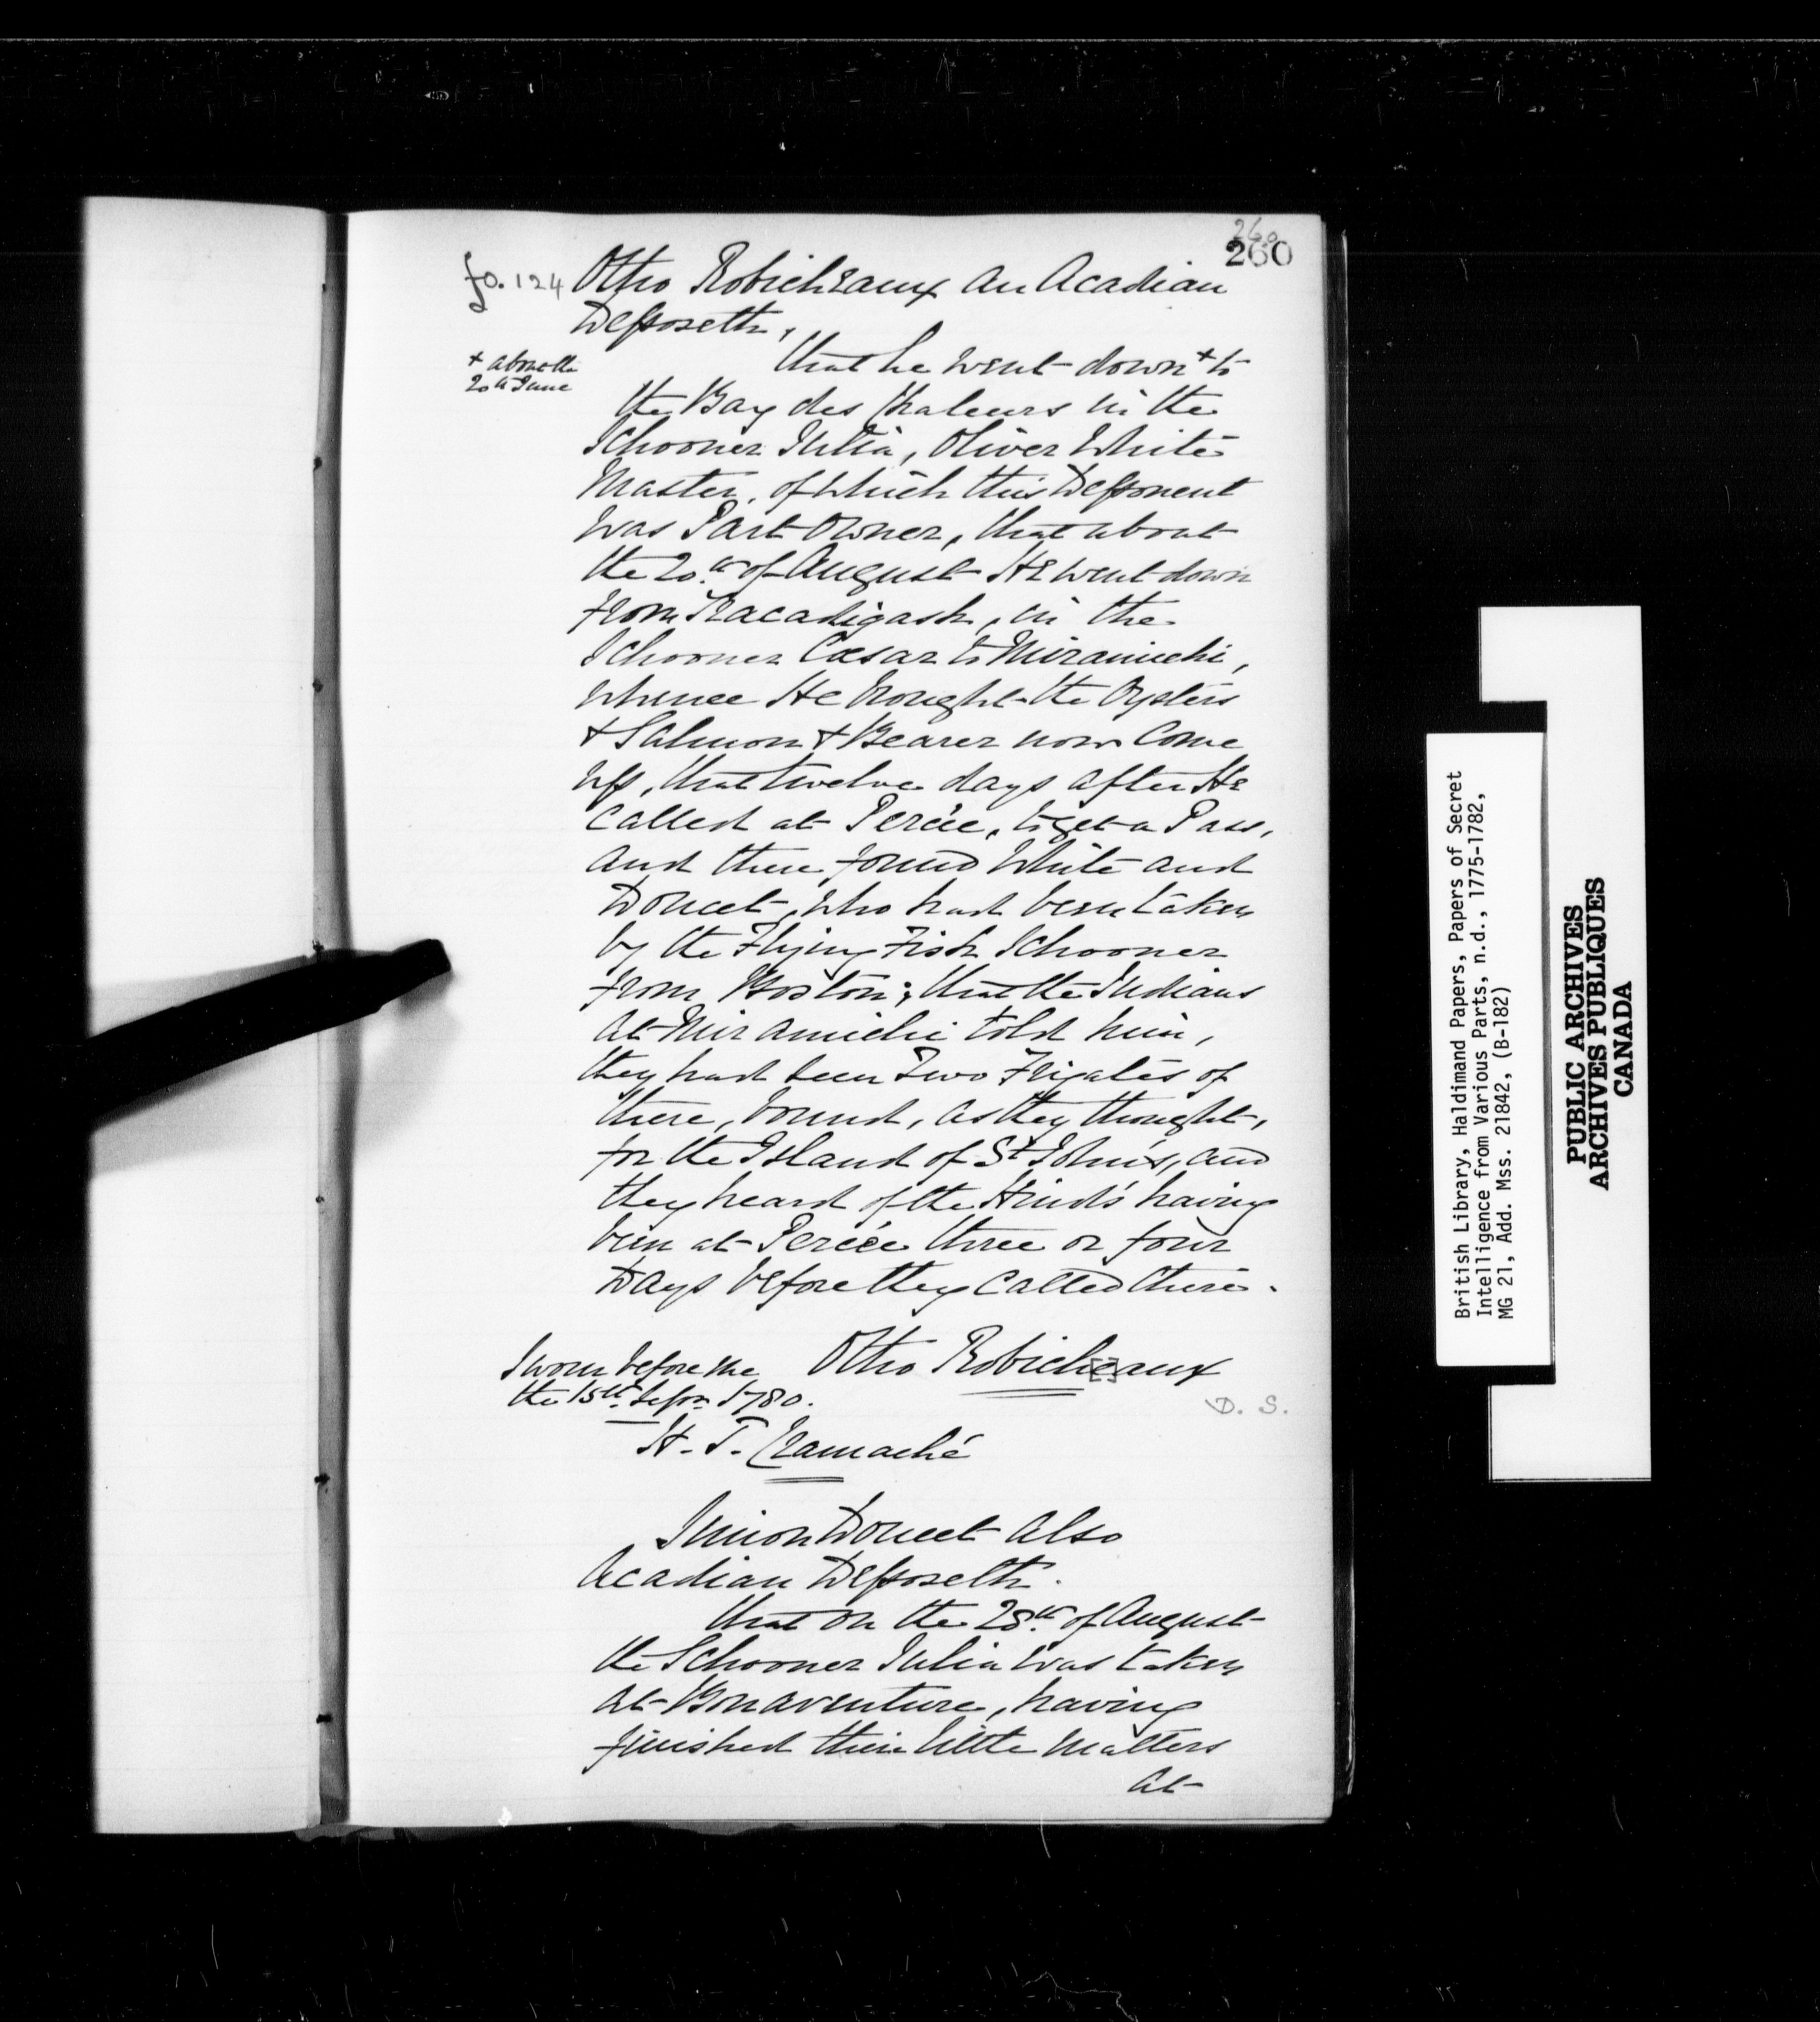 260
260
fo. 124 Otho Robicheaux an Acadian
Deposeth,
+ about the
20th June
that he went down + to
the Bay des Chaleurs in the
Schooner Julia, Oliver White
Master, of which this Deponent
was Part Owner, that about
the 20.th of August He went down
from Tracadigash, in the
Schooner Cæsar to Miramichi,
whence He brought the Oysters
& Salmon & Bearer now Come
up, that twelve days after He
called at Percée, to get a Pass,
and there found White and
Doucet, who had been taken
by the Flying Fish Schooner
from Boston; that the Indians
at Miramichi told him,
they had seen Two Frigates of
there, bound, as they thought,
for the Island of St. John's, and
they heard of the Hind's having
been at Percée three or four
Days before they called there.
Sworn before me
the 15th. Sepr. 1780.
Otho Robich[e]aux
D. S.
H. T. Cramaché
Simon Doucet also
Acadian Deposeth.
that on the 28th. of August
the Schooner Julia was taken
at Bonaventure, having
finished their little matters
at
British Library, Haldimand Papers, Papers of Secret
Intelligence from Various Parts, n.d., 1775-1782,
MG 21, Add. Mss. 21842, (B-182)
PUBLIC ARCHIVES
ARCHIVES PUBLIQUES
CANADA